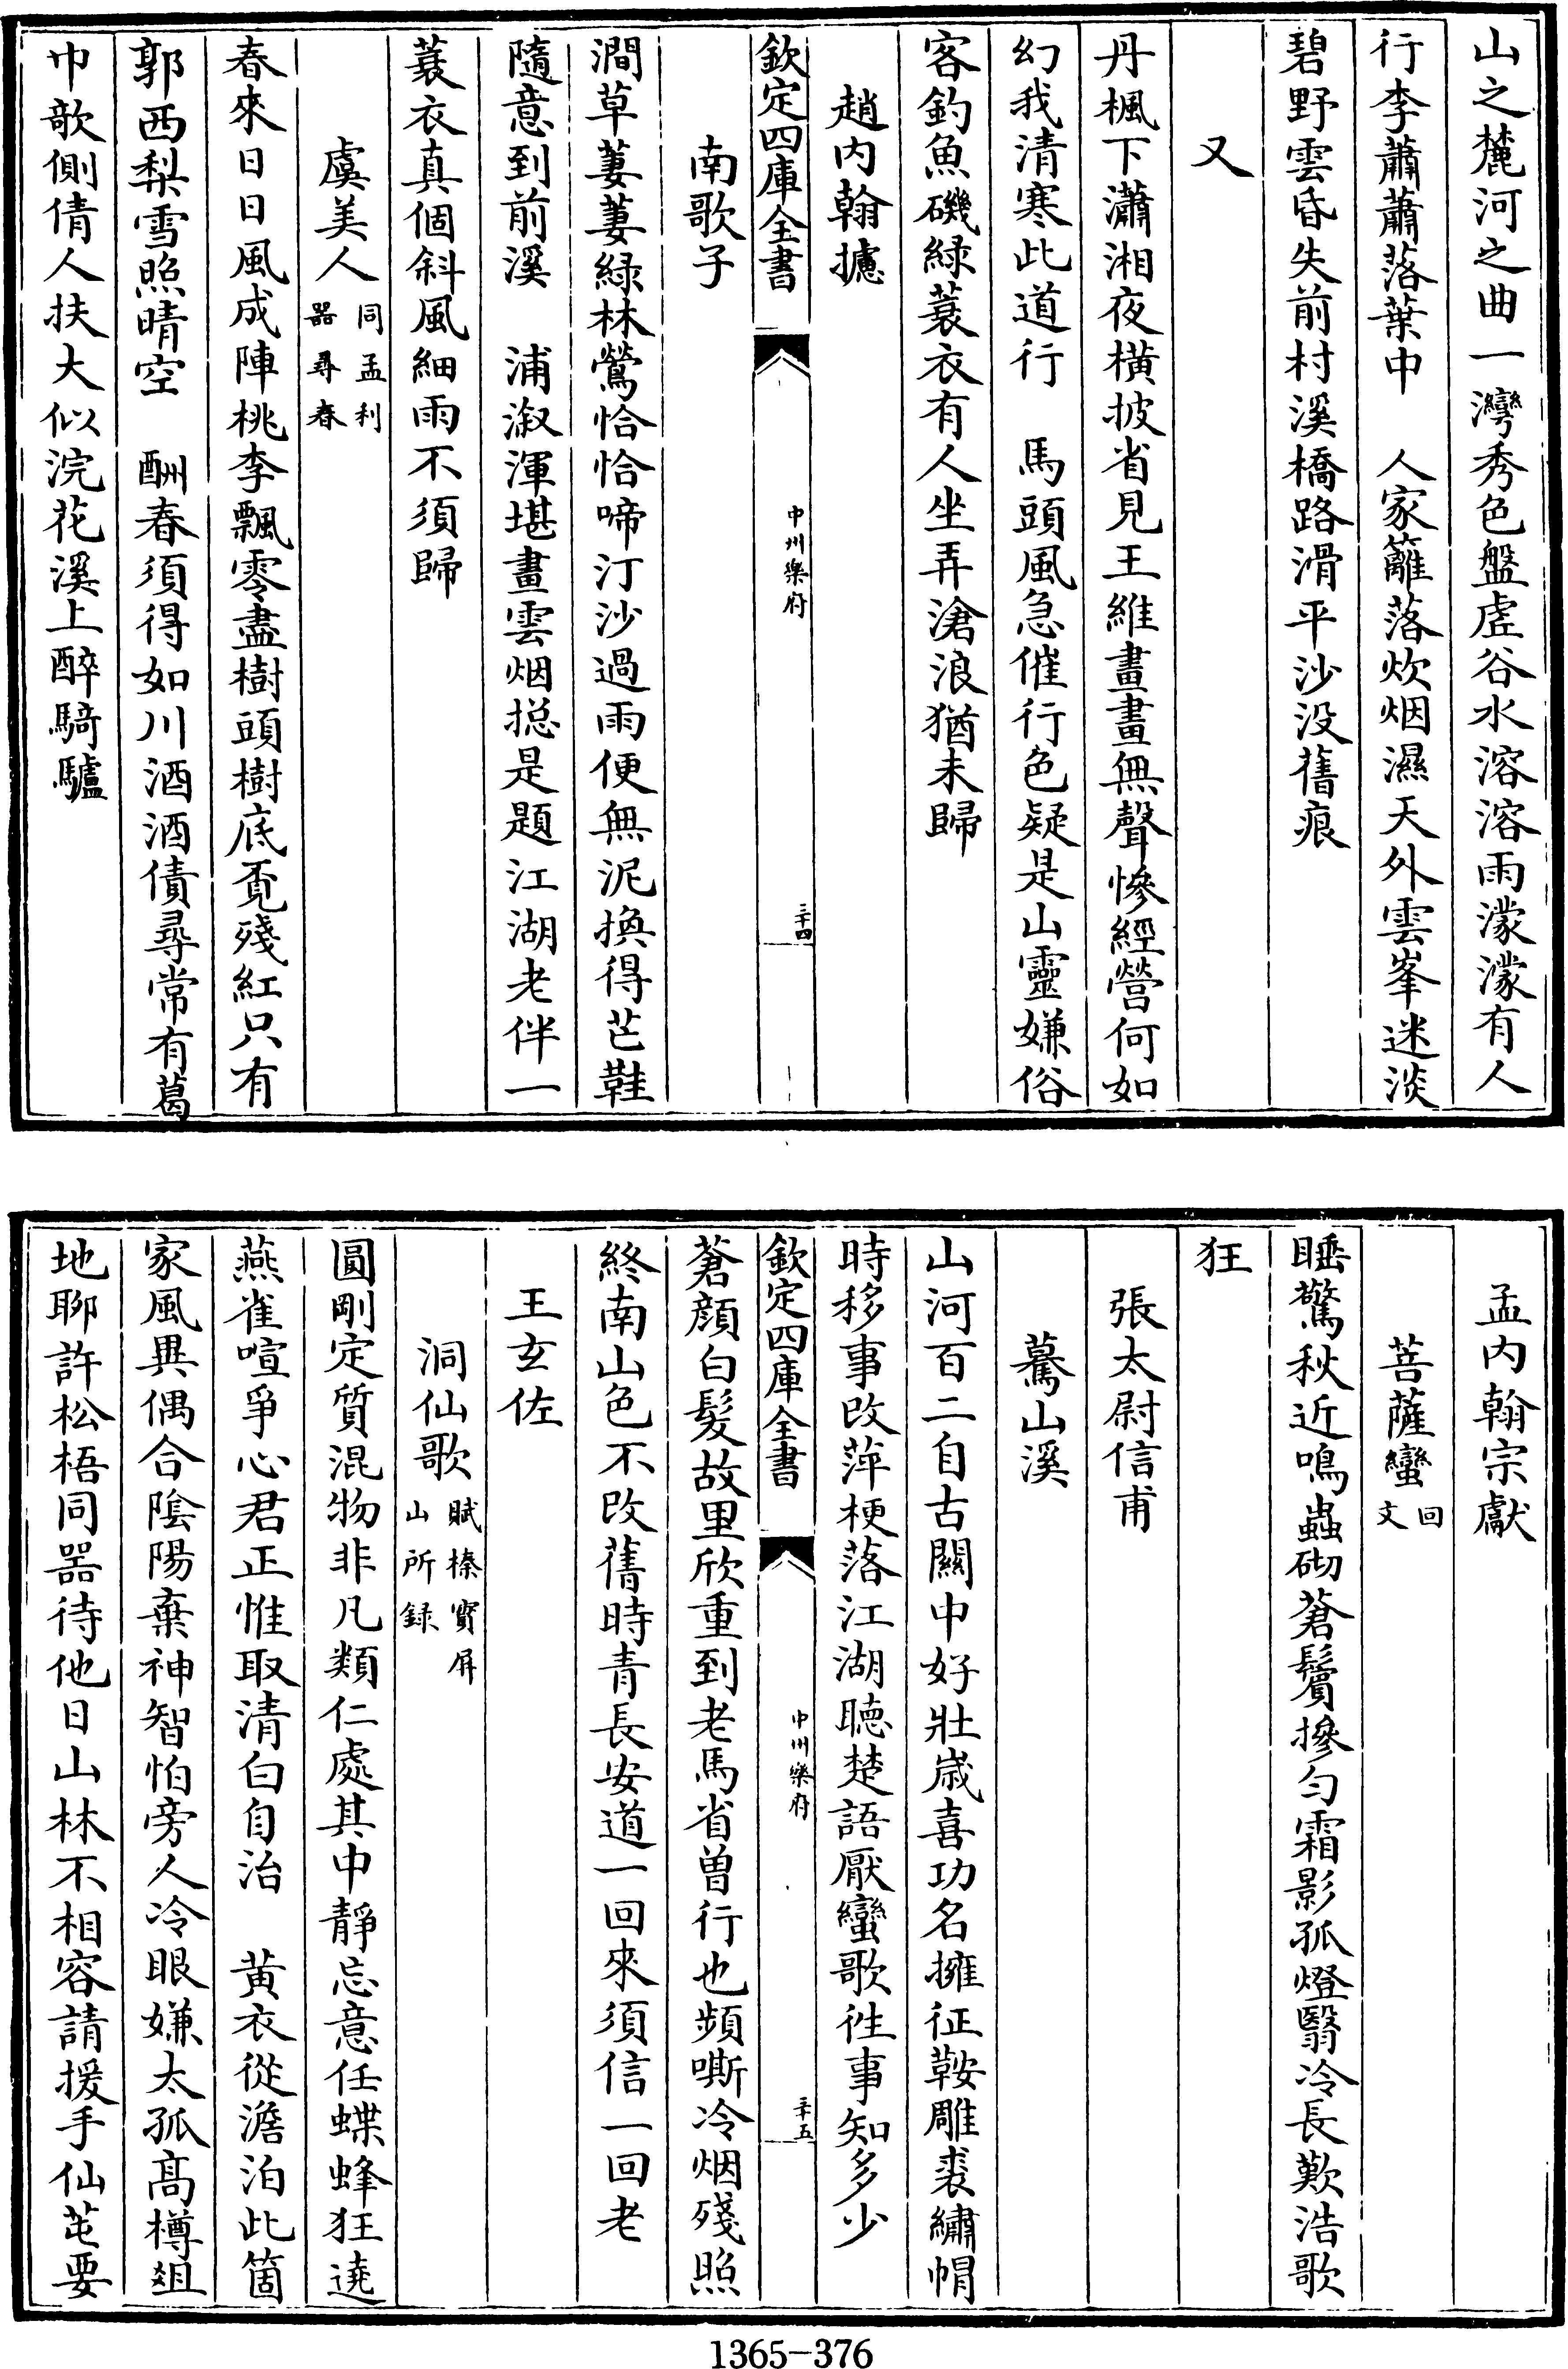 山之麓河之曲一灣秀色盤虛谷水溶溶雨濛濛有人
行李蕭蕭落葉中　人家籬落炊烟濕天外雲峯迷淡
碧野雲昏失前村溪橋路滑平沙没舊痕
又
丹楓下瀟湘夜橫披省見王維畫畫無聲慘經營何如
幻我清寒此道行　馬頭風急催行色疑是山靈嫌俗
客釣魚磯緑蓑衣有人坐弄滄浪猶未歸
趙内翰攄
欽定四庫全書
中州樂府
三十四
南歌子
澗草萋萋緑林鶯恰恰啼汀沙過雨便無泥換得芒鞋
隨意到前溪　浦漵渾堪畫雲烟揔是題江湖老伴一
蓑衣真個斜風細雨不須歸
虞美人同孟利
器尋春
春來日日風成陣桃李飄零盡樹頭樹底覔殘紅只有
郭西梨雪照晴空　酬春須得如川酒酒債尋常有葛
巾欹側倩人扶大似浣花溪上醉騎驢
孟内翰宗獻
菩薩蠻回
文
睡驚秋近鳴蟲砌蒼鬢摻勻霜影孤燈翳冷長歎浩歌
狂
張太尉信甫
驀山溪
山河百二自古闗中好壯歳喜功名擁征鞍雕裘繡帽
時移事改萍梗落江湖聴楚語厭蠻歌徃事知多少
欽定四庫全書
中州樂府
三十五
蒼顔白髪故里欣重到老馬省曽行也頻嘶冷烟殘照
終南山色不改舊時青長安道一回來須信一回老
王玄佐
洞仙歌賦榛寳屏
山所録
圓剛定質混物非凡類仁處其中靜忘意任蝶蜂狂遶
燕雀喧爭心君正惟取清白自治　黄衣從澹泊此箇
家風異偶合陰陽棄神智怕旁人冷眼嫌太孤髙樽俎
地聊許松梧同器待他日山林不相容請援手仙芼要
1365-376